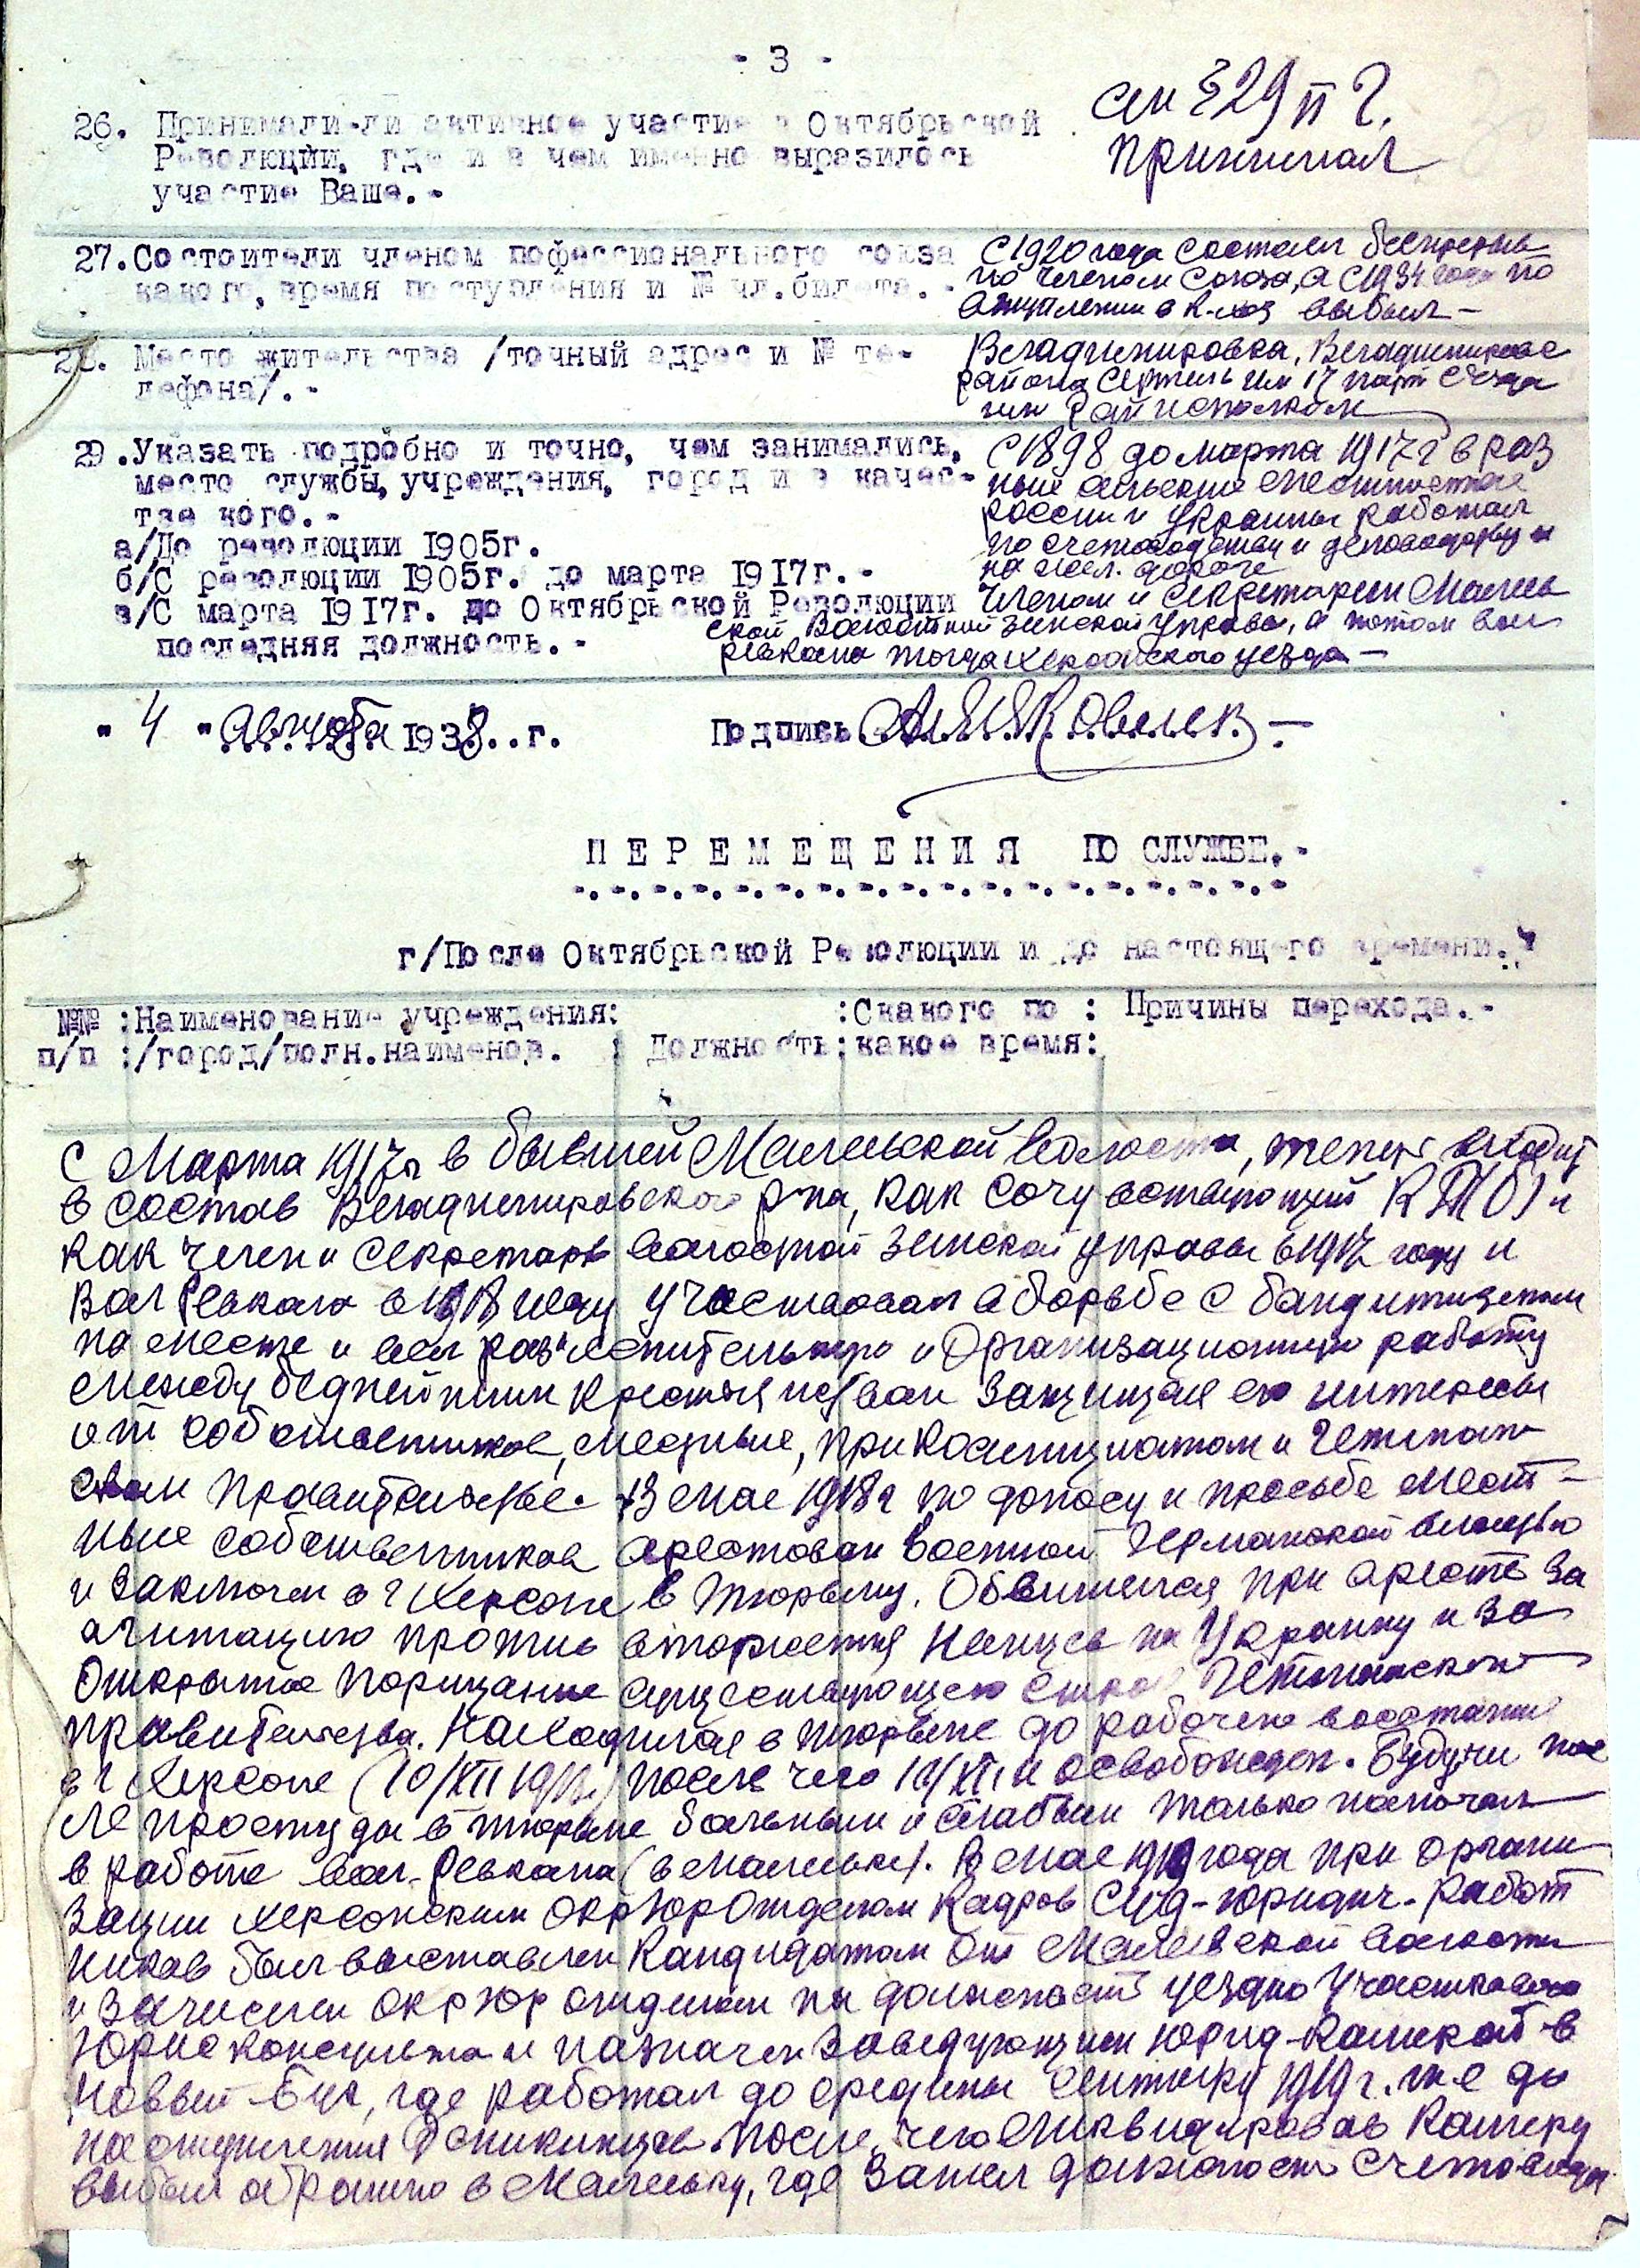 - 3 -
26. Принимали-ли активное участие в Октябрьской
Революции, где и в чем именно выразилось
участие Ваше. -
см § 29 п г.
принимал
27. Состоители членом пофессионального союза
какого, время поступления и № чл. билета. -
С 1920 года состоял беспрерыв
но членом союза, а с 1934 года по
вступлении в к-лхоз выбыл -
28. Место жительства /точный адрес и № те-
лефона/. -
Велadимировка, Владимировс
района Сертиль им 17 парт съезда
или Райисполком
29. Указать подробно и точно, чем занимались,
место службы, учреждения, город и в качес-
тве кого. -
а/До революции 1905г.
б/С революции 1905г. до марта 1917г. -
в/С марта 1917г. до Октябрьской Революции
последняя должность. -
С 1898 до марта 1917 г в раз
ных сельских местностях
России и Украины работал
по счетоводству и деловодству и
на жел. дороге
Членом и секретарем Малеев
ской Волостной земской управы, а потом вол
ревкома тогда Херсонского уезда -
" 4 " Августа 1938 .. г.
Подпись А. Яковлев. -
ПЕРЕМЕЩЕНИЯ ПО СЛУЖБЕ. -
г/После Октябрьской Революции и до настоящего времени.
№№ : Наименование учреждения: : Скакого по : Причины перехода. -
п/п :/город/полн.наименов. : Должность: какое время:
С Марта 1917 г в бывшей Волости, теперь входит
в состав Владимировского р-на, как сочувствующий
как член и секретарь волостной земской управы в 1917 году и
Вол Ревкома в 1918 году участвовал в борьбе с бандитизмом
на месте и вел раз'яснительную и Организационную работу
между беднейшим крестьянством защищая его интересы
от собственников, местных, при и Гетман
ском Правительстве. В мае 1918 г по доносу и просьбе мест-
ных собственников арестован военной Германской властью
и заключен в г Херсоне в тюрьму. Обвинялся при аресте за
агитацию против вторжения немцев на Украину и за
Открытое порицание существующего строя Гетманского
правительства. Находился в тюрьме до рабочего восстания
в г Херсоне (10/XII 1918) после чего 11/XII и освобожден. Будучи пос
ле простуды в тюрьме больным и слабым только помогал
в работе вол-ревкома. В мае 1919 года при органи
зации Херсонским ОкрЮрОтделом Кадров Суд-юридич. работ
ников был выставлен Кандидатом от волости
и зачислен ОкрЮр отделом на должность уездно Участкового
Юрисконсульта и назначен заведующим юрид-камерой в
Новый Буг, где работал до средины 1919 г. т.е до
наступления Деникинцев. После чего ликвидировав Камеру
выбыл обратно в, где занял должность счетовода